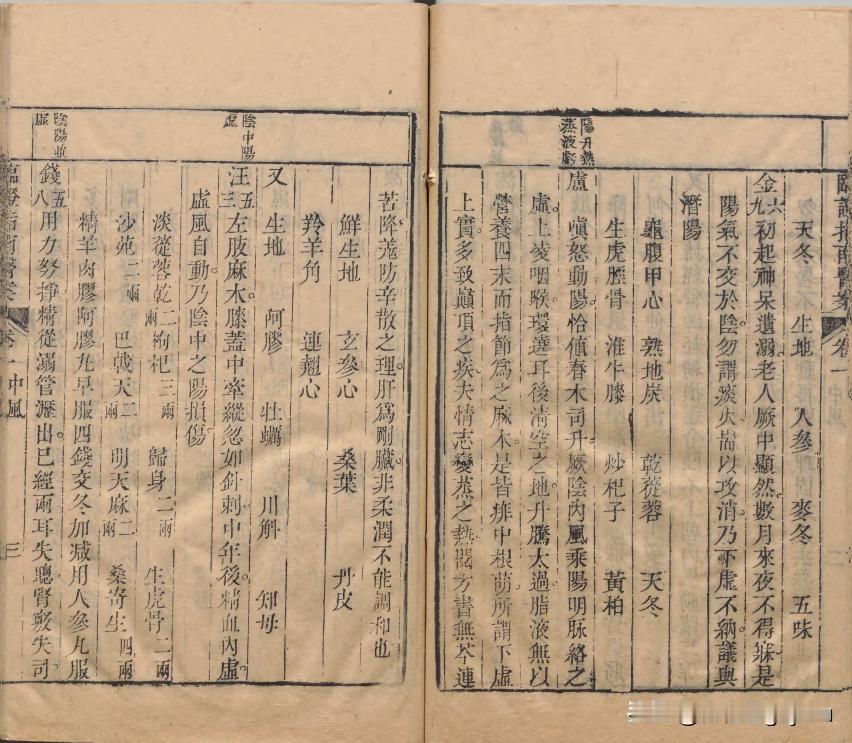 臨證指南醫案 卷一 中風 二
天冬 生地 人參 麥冬 五味
金 六九 初起神呆遺溺老人厥中顯然數月來夜不得寐是
陽氣不交於陰勿謂痰火耑以攻消乃下虛不納議與
潛陽
龜腹甲心 熟地炭 乾蓯蓉 天冬
生虎脛骨 淮牛膝 炒杞子 黃柏
陽升熱蒸液虧
盧 嗔怒動陽恰値春木司升厥陰內風乘陽明脈絡之
虛上凌咽喉環遶耳後清空之地升騰太過脂液無以
營養四末而指節爲之麻木是皆痱中根萌所謂下虛
上實多致巔頂之疾夫情志變蒸之熱閱方書無芩連
苦降羗防辛散之理肝爲剛臟非柔潤不能調和也
鮮生地 玄參心 桑葉 丹皮
羚羊角 連翹心
又 生地 阿膠 牡蠣 川斛 知母
陰中陽虛
汪 五三 左肢麻木膝蓋中牽縱忽如針刺中年後精血內虛
虛風自動乃陰中之陽損傷
淡蓯蓉乾二兩 枸杞三兩 歸身二兩 生虎骨二兩
沙苑二兩 巴戟天二兩 明天麻二兩 桑寄生四兩
精羊肉膠阿膠丸早服四錢交冬加減用人參丸服
陰陽並虛
錢 五八 用力努掙精從溺管瀝出已經兩耳失聰腎竅失司
臨證指南醫案 卷一 中風 三